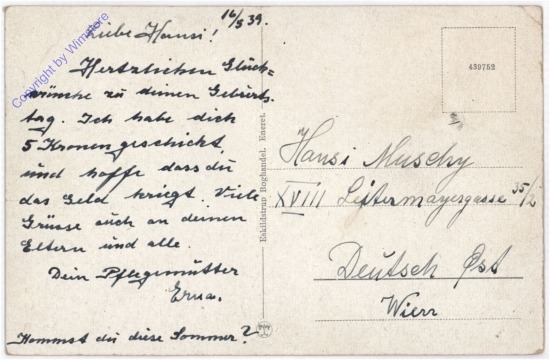 16/5 39.
Liebe Hansi!
Hertzlichen Glück=
wünsche zu deinen Gebürts
tag. Ich habe dich
5 Kronen geschickt
und hoffe dass du
das Geld kriegt. Viele
Grüsse auch an deinen
Eltern und alle.
Dein Pflegemutter
Erna.
Kommst du diese Sommer?
Eskildstrup Boghandel. Eneret.
439752
Hansi Muschy
XVIII Leitermayergasse 35/2
Deutsch Öst
Wien
Copyright by Winstore